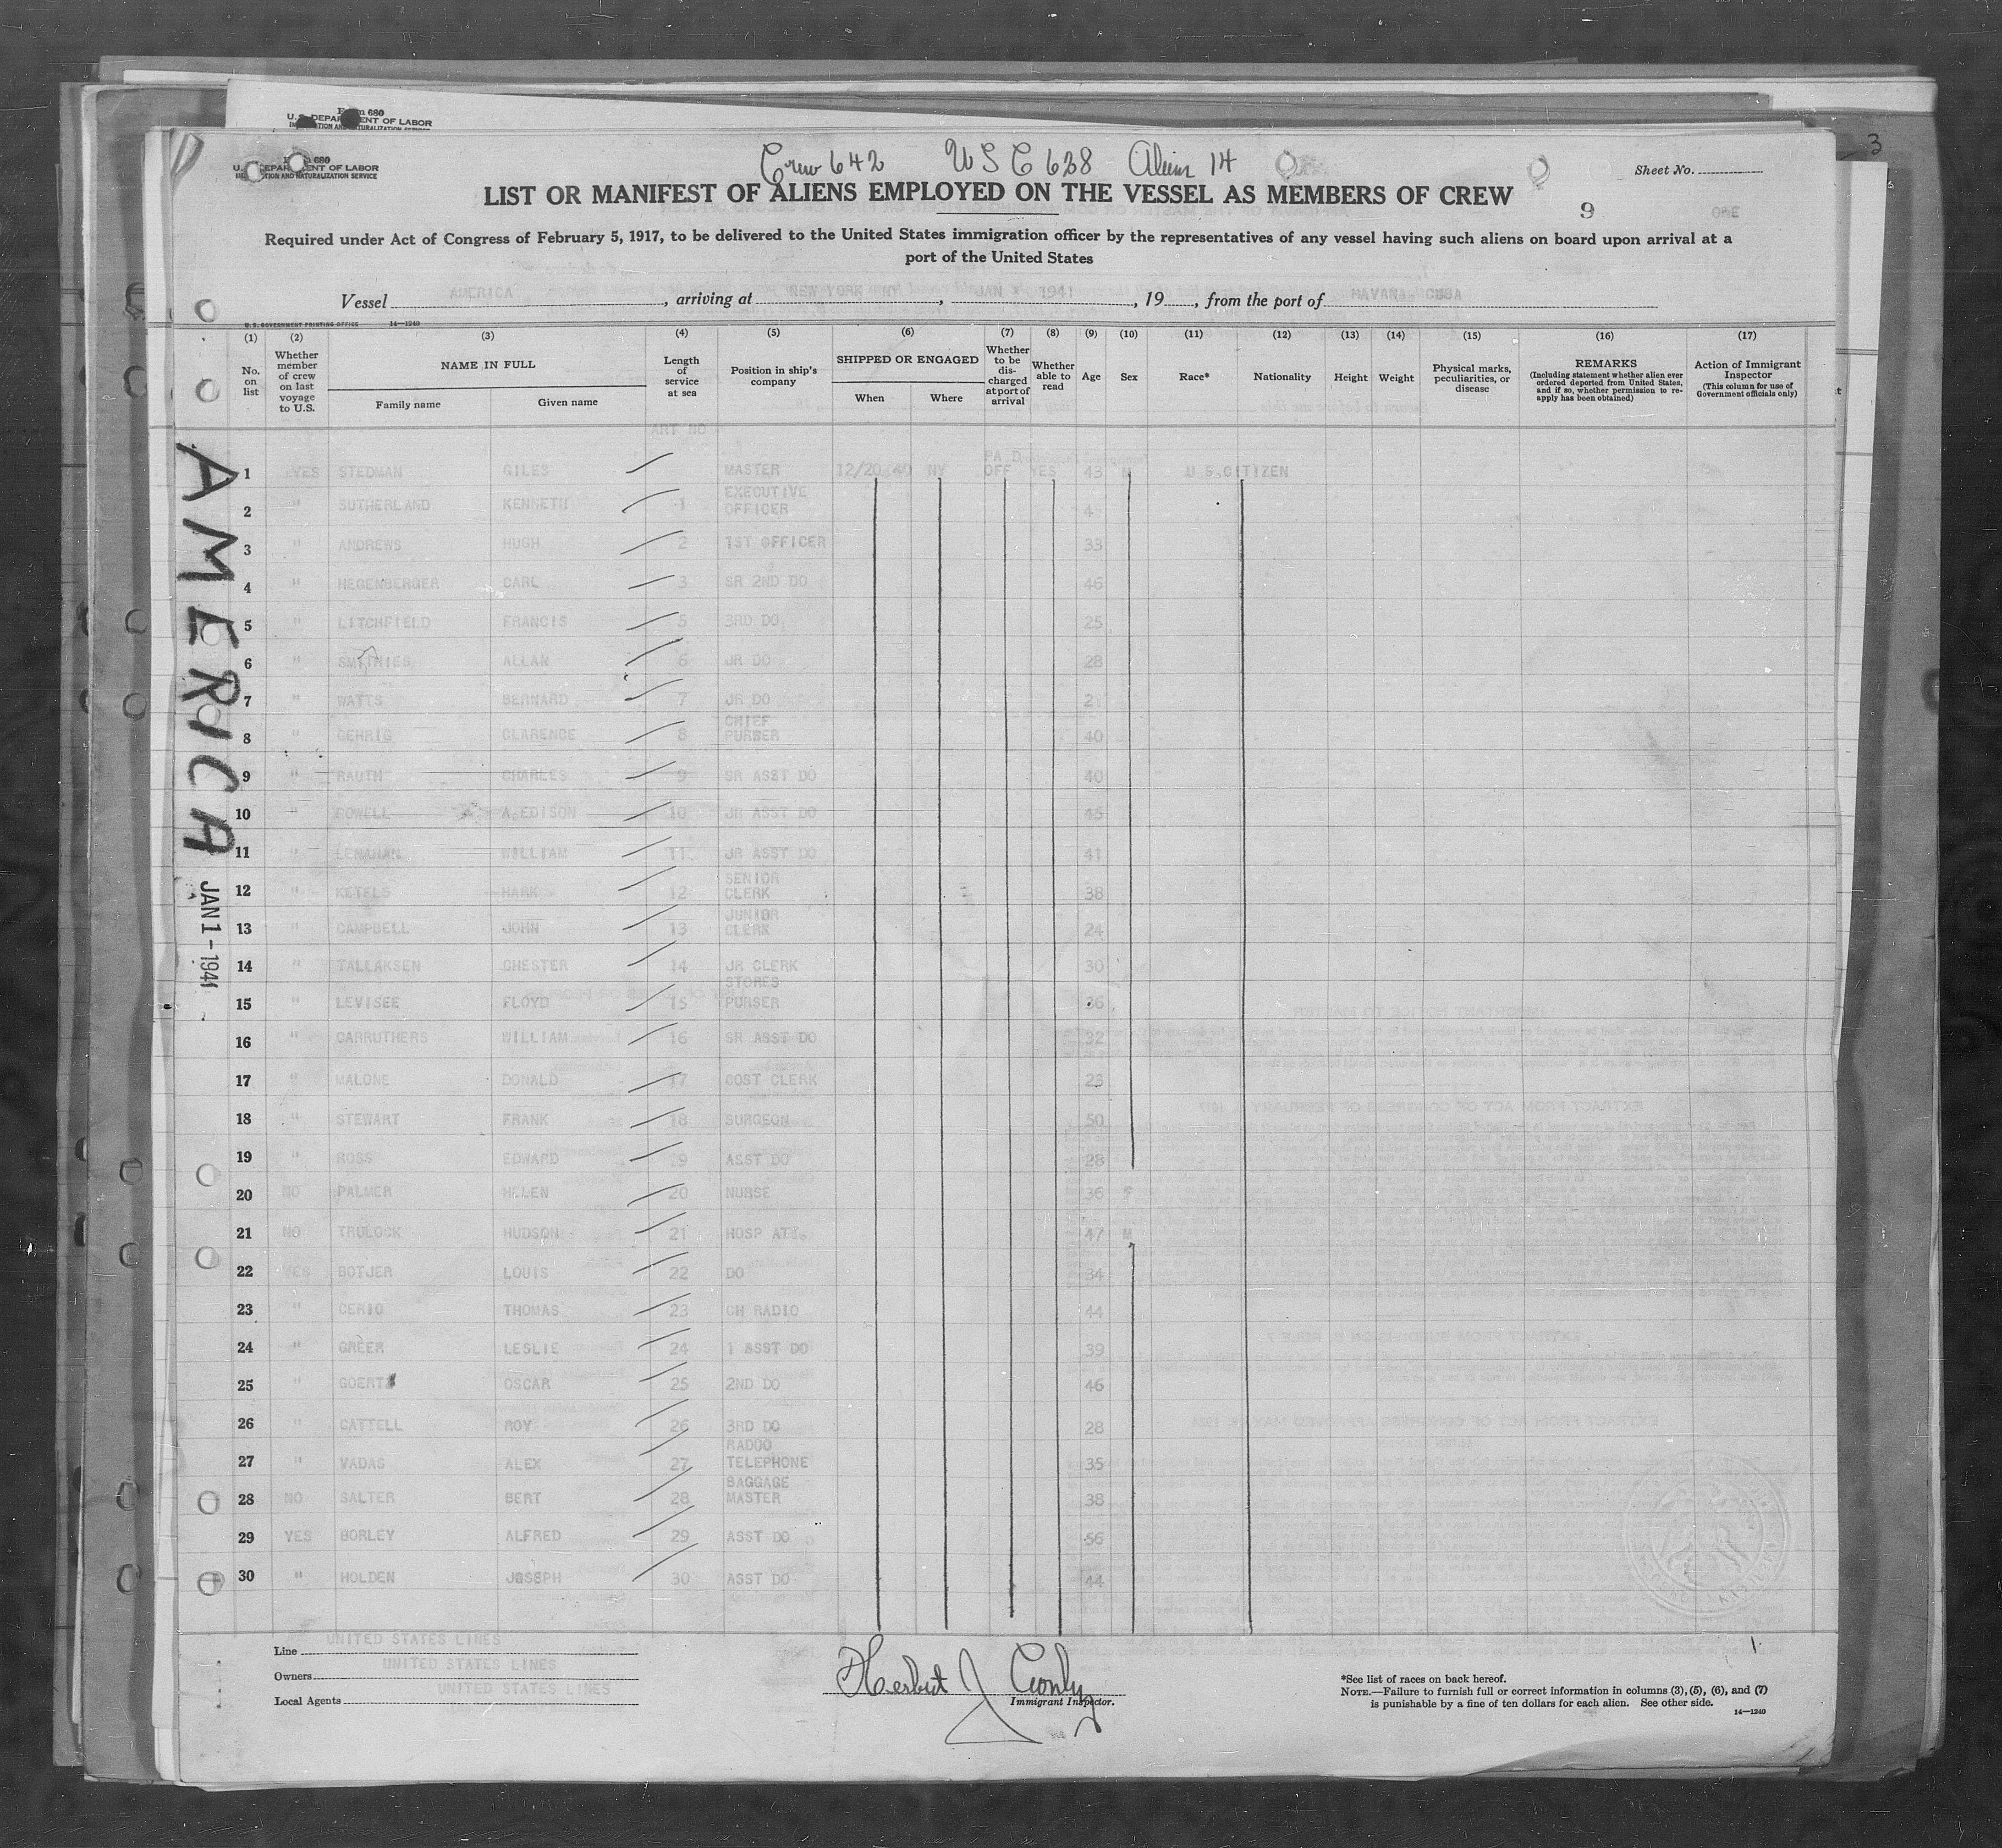 Form 680
U. S. DEPARTMENT OF LABOR
Form 680
U. S. DEPARTMENT OF LABOR
IMMIGRATION AND NATURALIZATION SERVICE
Crew 642 USC 628 Aliens 14
Sheet No.
LIST OR MANIFEST OF ALIENS EMPLOYED ON THE VESSEL AS MEMBERS OF CREW
9
Required under Act of Congress of February 5, 1917, to be delivered to the United States immigration officer by the representatives of any vessel having such aliens on board upon arrival at a
port of the United States
Vessel AMERICA, arriving at NEW YORK NY, JAN 1 1941, 19, from the port of HAVANA CUBA
U. S. GOVERNMENT PRINTING OFFICE 14—1240
(1) (2) (3) (4) (5) (6) (7) (8) (9) (10) (11) (12) (13) (14) (15) (16) (17)
No. on list
Whether member of crew on last voyage to U.S.
NAME IN FULL
Family name Given name
Length of service at sea
Position in ship's company
SHIPPED OR ENGAGED
When Where
Whether to be discharged at port of arrival
Whether able to read
Age Sex Race* Nationality Height Weight
Physical marks, peculiarities, or disease
REMARKS
(Including statement whether alien ever ordered deported from United States, and if so, whether permission to reapply has been obtained)
Action of Immigrant Inspector
(This column for use of Government officials only)
ART NO
1 YES STEDMAN GILES MASTER 12/20/40 NY PA D OFF YES 43 M U S CITIZEN
2 " SUTHERLAND KENNETH 1 EXECUTIVE OFFICER
3 " ANDREWS HUGH 2 1ST OFFICER 33
4 " HEGENBERGER CARL 3 SR 2ND DO 46
5 " LITCHFIELD FRANCIS 5 3RD DO 25
6 " SMITHIES ALLAN 6 JR DO 28
7 " WATTS BERNARD 7 JR DO
8 " GEHRIG CLARENCE 8 CHIEF PURSER 40
9 " RAUTH CHARLES 9 SR ASST DO 40
10 " POWELL A. EDISON 10 JR ASST DO 45
11 " LENAHAN WILLIAM 11 JR ASST DO 41
12 " KETELS HARK 12 SENIOR CLERK 38
13 " CAMPBELL JOHN 13 JUNIOR CLERK 24
14 " TALLAKSEN CHESTER 14 JR CLERK 30
15 " LEVISEE FLOYD 15 STORES PURSER 36
16 " CARRUTHERS WILLIAM 16 SR ASST DO 32
17 " MALONE DONALD 17 COST CLERK 23
18 " STEWART FRANK 18 SURGEON 50
19 " ROSS EDWARD 19 ASST DO 28
20 NO PALMER HELEN 20 NURSE 36 F
21 NO TRULOCK HUDSON 21 HOSP ATT. 47 M
22 YES BOTJER LOUIS 22 DO 34
23 " CERIO THOMAS 23 CH RADIO 44
24 " GREER LESLIE 24 1 ASST DO 39
25 " GOERTZ OSCAR 25 2ND DO 46
26 " CATTELL ROY 26 3RD DO 28
27 " VADAS ALEX 27 RADOO TELEPHONE 35
28 NO SALTER BERT 28 BAGGAGE MASTER 38
29 YES BORLEY ALFRED 29 ASST DO 56
30 " HOLDEN JOSEPH 30 ASST DO 44
AMERICA
JAN 1 - 1941
Line UNITED STATES LINES
Owners UNITED STATES LINES
Local Agents UNITED STATES LINES
Herbert J Conly
Immigrant Inspector.
1
*See list of races on back hereof.
NOTE.—Failure to furnish full or correct information in columns (3), (5), (6), and (7)
is punishable by a fine of ten dollars for each alien. See other side.
14—1240
3